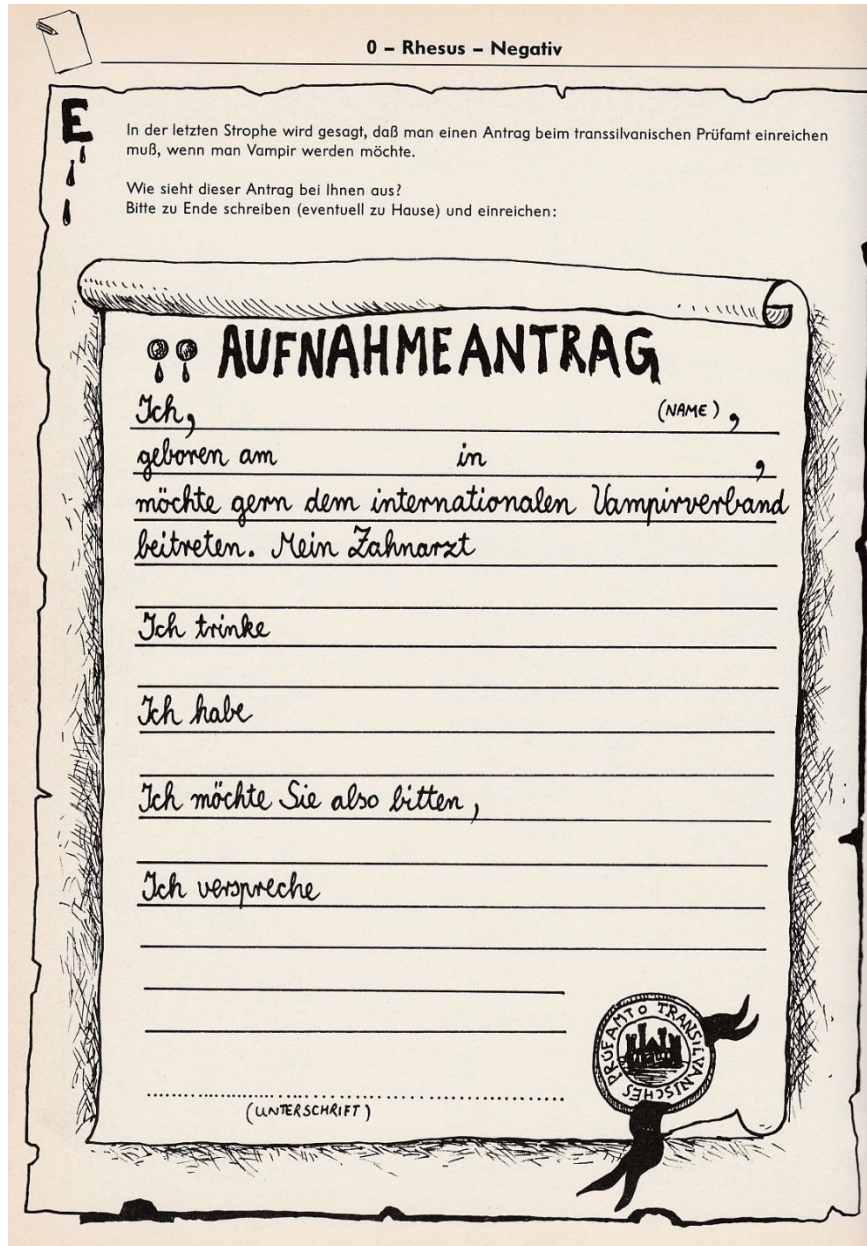 0 – Rhesus – Negativ
E
In der letzten Strophe wird gesagt, daß man einen Antrag beim transsilvanischen Prüfamt einreichen
muß, wenn man Vampir werden möchte.
Wie sieht dieser Antrag bei Ihnen aus?
Bitte zu Ende schreiben (eventuell zu Hause) und einreichen:
AUFNAHMEANTRAG
Ich, (NAME),
geboren am in ,
möchte gern dem internationalen Vampirverband
beitreten. Mein Zahnarzt
Ich trinke
Ich habe
Ich möchte Sie also bitten,
Ich verspreche
(UNTERSCHRIFT)
TRANSILVANISCHES PRÜFAMT O